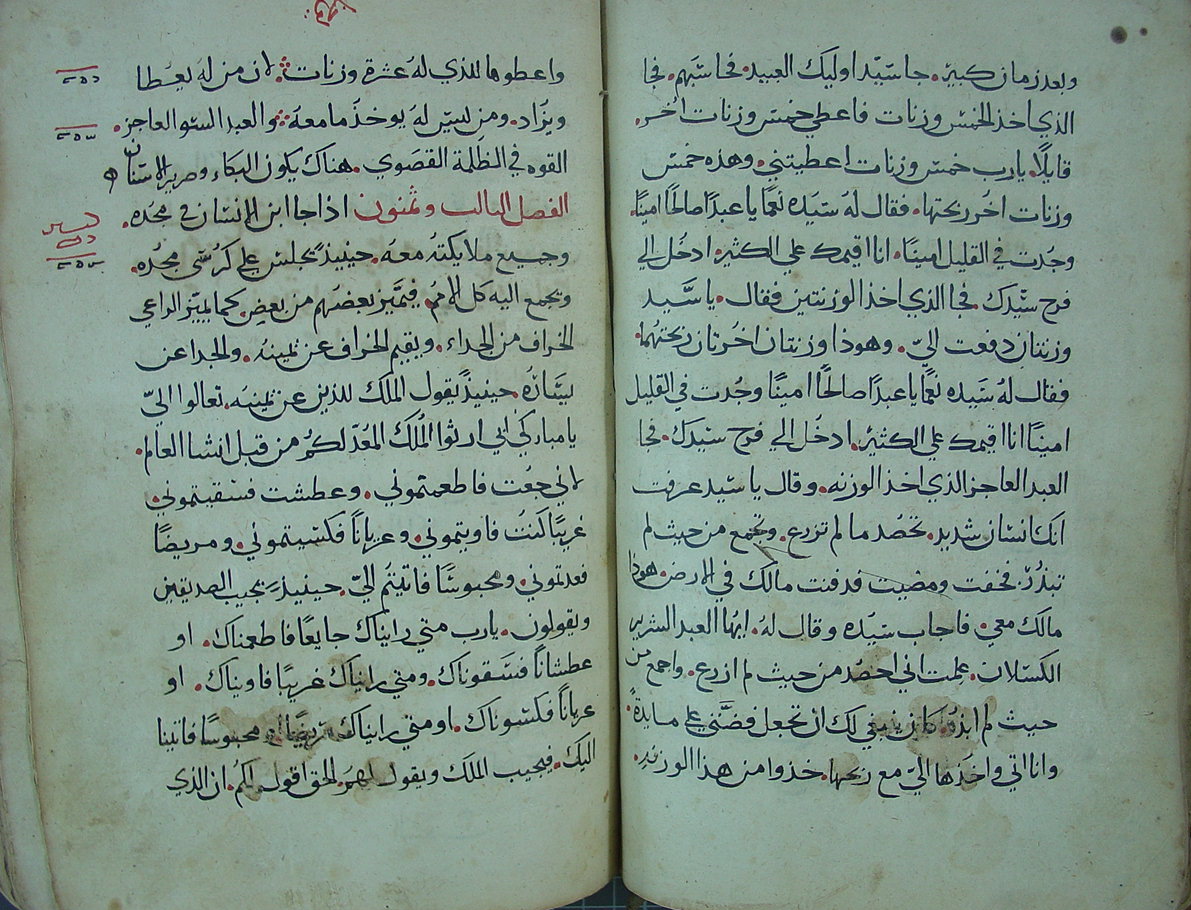 وبعد زمان كبير. جا سيد اوليك العبيد. فحاسبهم. فجا
الذي اخذ الخمس وزنات فاعطي خمس وزنات اخر.
قايلا. يارب خمس وزنات اعطيتني. وهذه خمس
وزنات اخر ربحتها. فقال له سيده نعما يا عبدا صالحا امينا.
وجدت في القليل امينا. انا اقيمك علي الكثير. ادخل الي
فرح سيدك. فجا الذي اخذ الوزنتين فقال. يا سيد
وزنتان دفعت الي. وهوذا وزنتان اخرتان ربحتهما.
فقال له سيده نعما يا عبدا صالحا امينا وجدت في القليل
امينا انا اقيمك علي الكثير. ادخل الي فرح سيدك. فجا
العبد العاجز الذي اخذ الوزنه. وقال يا سيد عرفت
انك انسان شديد. تحصد ما لم تزرع. وتجمع من حيث لم
تبذر. فخفت ومضيت فدفنت مالك في الارض. هوذا
مالك معي. فاجاب سيده وقال له. ايها العبد الشرير
الكسلان. علمت اني احصد من حيث لم ازرع. واجمع من
حيث لم ابذر. كان ينبغي لك ان تجعل فضتي علي مايدة.
وانا اتي واخذها الي مع ربحها. خذوا من هذا الوزنه.
واعطوها للذي له عشرة وزنات. لان من له يعطا
ويزاد. ومن ليس له يوخذ ما معه. والعبد السو العاجز.
القوه في الظلمة القصوي. هناك يكون البكاء وصرير الاسنان
الفصل الثالث وثمنون اذا جا ابن الانسان في مجده.
وجميع ملايكته معه. حينيذ يجلس علي كرسي مجده.
ويجمع اليه كل الامم. فيميز بعضهم من بعض. كما يميز الراعي
الخراف من الجداء. ويقيم الخراف عن يمينه. والجدا عن
يساره. حينيذ يقول الملك للذين عن يمينه. تعالوا الي
يا مباركي ابي ارثوا الملك المعد لكم من قبل انشا العالم.
لاني جعت فاطعمتموني. وعطشت فسقيتموني.
غريبا كنت فاويتموني. وعريانا فكسيتموني. ومريضا
فعدتموني. ومحبوسا فاتيتم الي. حينيذ يجيب الصديقين
ويقولون. يارب متي رايناك جايعا فاطعمناك. او
عطشانا فسقوناك. ومتي رايناك غريبا فاويناك. او
عريانا فكسوناك. او متي رايناك مريضا او محبوسا فاتينا
اليك. فيجيب الملك ويقول لهم. الحق اقول لكم. ان الذي